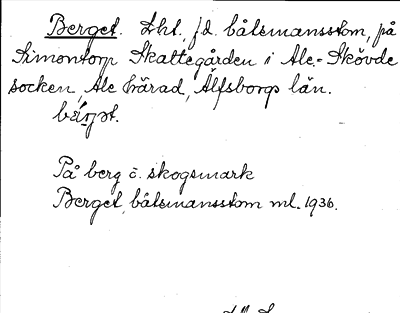 Berget. Lht, f.d. båtsmanstom, på
Simontorp Skattegården i Ale-Skövde
socken, Ale härad, Älfsborgs län.
På berg o. skogsmark
Berget, båtsmanstom ml. 1936.